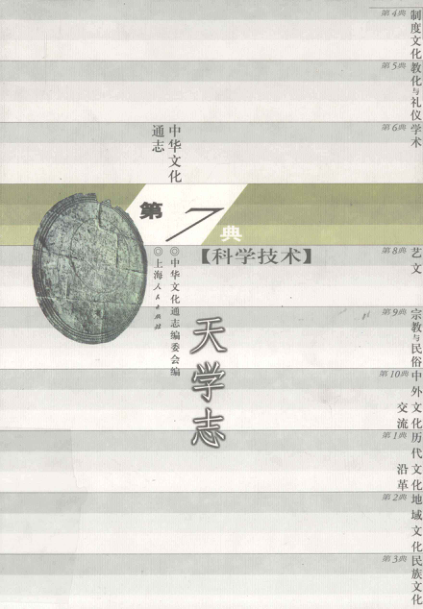 中华文化
通志
第7典
【科学技术】
◎中华文化通志编委会编
◎上海人民出版社
天学志
第4典 制度文化
第5典 教化与礼仪
第6典 学术
第8典 艺文
第9典 宗教与民俗
第10典 中外文化
交流
第1典 历代文化
沿革
第2典 地域文化
第3典 民族文化